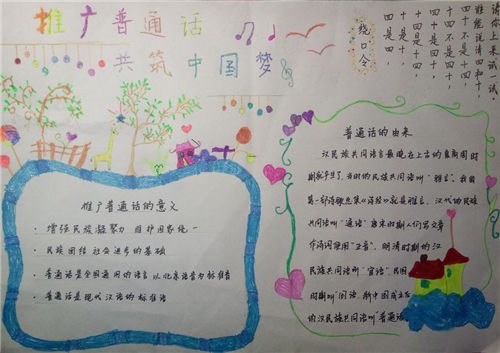 推广普通话
共筑中国梦
绕口令
四是四，
十是十，
十四是十四，
四十是四十，
十四不是四十，
四十不是十四，
谁能说清四和十，
请你上来试一试。
推广普通话的意义
· 增强民族凝聚力 维护国家统一
· 民族团结 社会进步的基础
· 普通话是全国通用的语言 以北京语音为标准音
· 普通话是现代汉语的标准语
普通话的由来
汉民族共同语言最晚在上古的夏商周时
期就产生了，当时的民族共同语叫“雅言”，我国
第一部诗歌总集《诗经》就是雅言。汉代的民族
共同语叫“通语” 唐宋时期人们写文章
作诗词使用“正音”，明清时期的汉
民族共同语叫“官话”，民国
时期叫“国语，新中国成立
的汉民族共同语叫“普通话